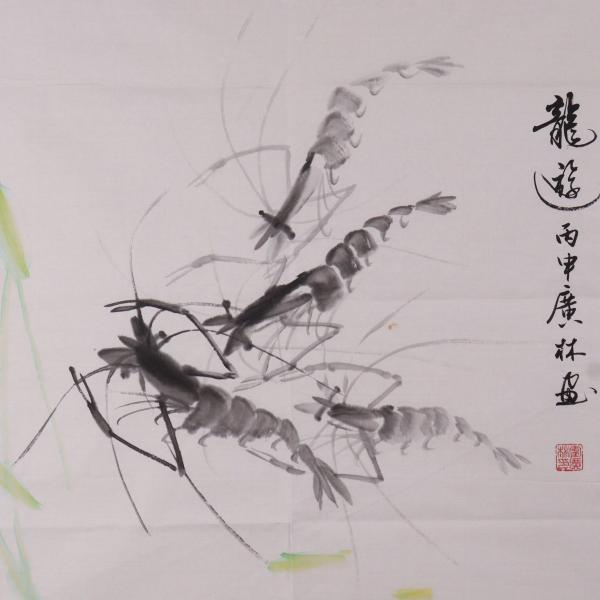 龍游丙申廣林畫